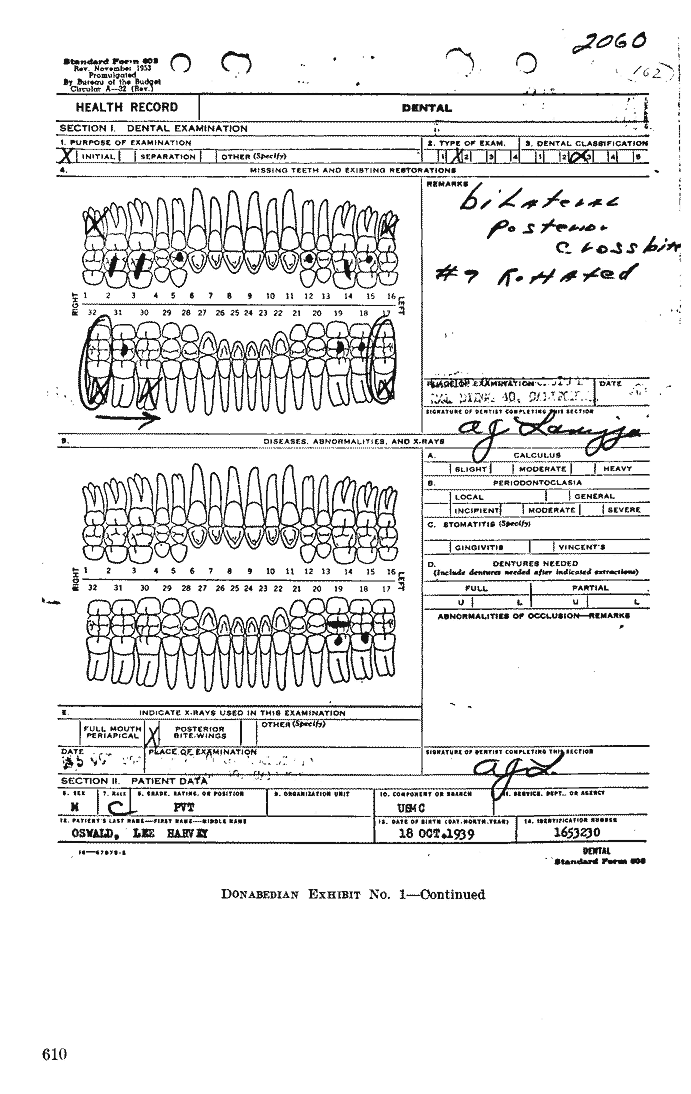 2060
(62)
Standard Form 603
Rev. November 1953
Promulgated
By Bureau of the Budget
Circular A—32 (Rev.)
HEALTH RECORD DENTAL
SECTION I. DENTAL EXAMINATION
1. PURPOSE OF EXAMINATION 2. TYPE OF EXAM. 3. DENTAL CLASSIFICATION
X INITIAL SEPARATION OTHER (Specify) 1 X 2 3 4 1 2 3 4 5
4. MISSING TEETH AND EXISTING RESTORATIONS
REMARKS
bilateral
posterior
crossbite
#7 Rotated
RIGHT 1 2 3 4 5 6 7 8 9 10 11 12 13 14 15 16 LEFT
32 31 30 29 28 27 26 25 24 23 22 21 20 19 18 17
PLACE OF EXAMINATION DATE
SIGNATURE OF DENTIST COMPLETING THIS SECTION
5. DISEASES, ABNORMALITIES, AND X-RAYS
A. CALCULUS
SLIGHT MODERATE HEAVY
B. PERIODONTOCLASIA
LOCAL GENERAL
INCIPIENT MODERATE SEVERE
C. STOMATITIS (Specify)
GINGIVITIS VINCENT'S
D. DENTURES NEEDED
(Include dentures needed after indicated extractions)
FULL PARTIAL
U L U L
ABNORMALITIES OF OCCLUSION—REMARKS
RIGHT 1 2 3 4 5 6 7 8 9 10 11 12 13 14 15 16 LEFT
32 31 30 29 28 27 26 25 24 23 22 21 20 19 18 17
E. INDICATE X-RAYS USED IN THIS EXAMINATION
FULL MOUTH PERIAPICAL X POSTERIOR BITE-WINGS OTHER (Specify)
DATE PLACE OF EXAMINATION SIGNATURE OF DENTIST COMPLETING THIS SECTION
SECTION II. PATIENT DATA
6. SEX 7. RACE 8. GRADE, RATING, OR POSITION 9. ORGANIZATION UNIT 10. COMPONENT OR BRANCH 11. SERVICE, DEPT., OR AGENCY
M C PVT USMC
12. PATIENT'S LAST NAME—FIRST NAME—MIDDLE NAME 13. DATE OF BIRTH (DAY, MONTH, YEAR) 14. IDENTIFICATION NUMBER
OSWALD, LEE HARVEY 18 OCT.1939 1653230
DENTAL
Standard Form 603
DONABEDIAN EXHIBIT No. 1—Continued
610